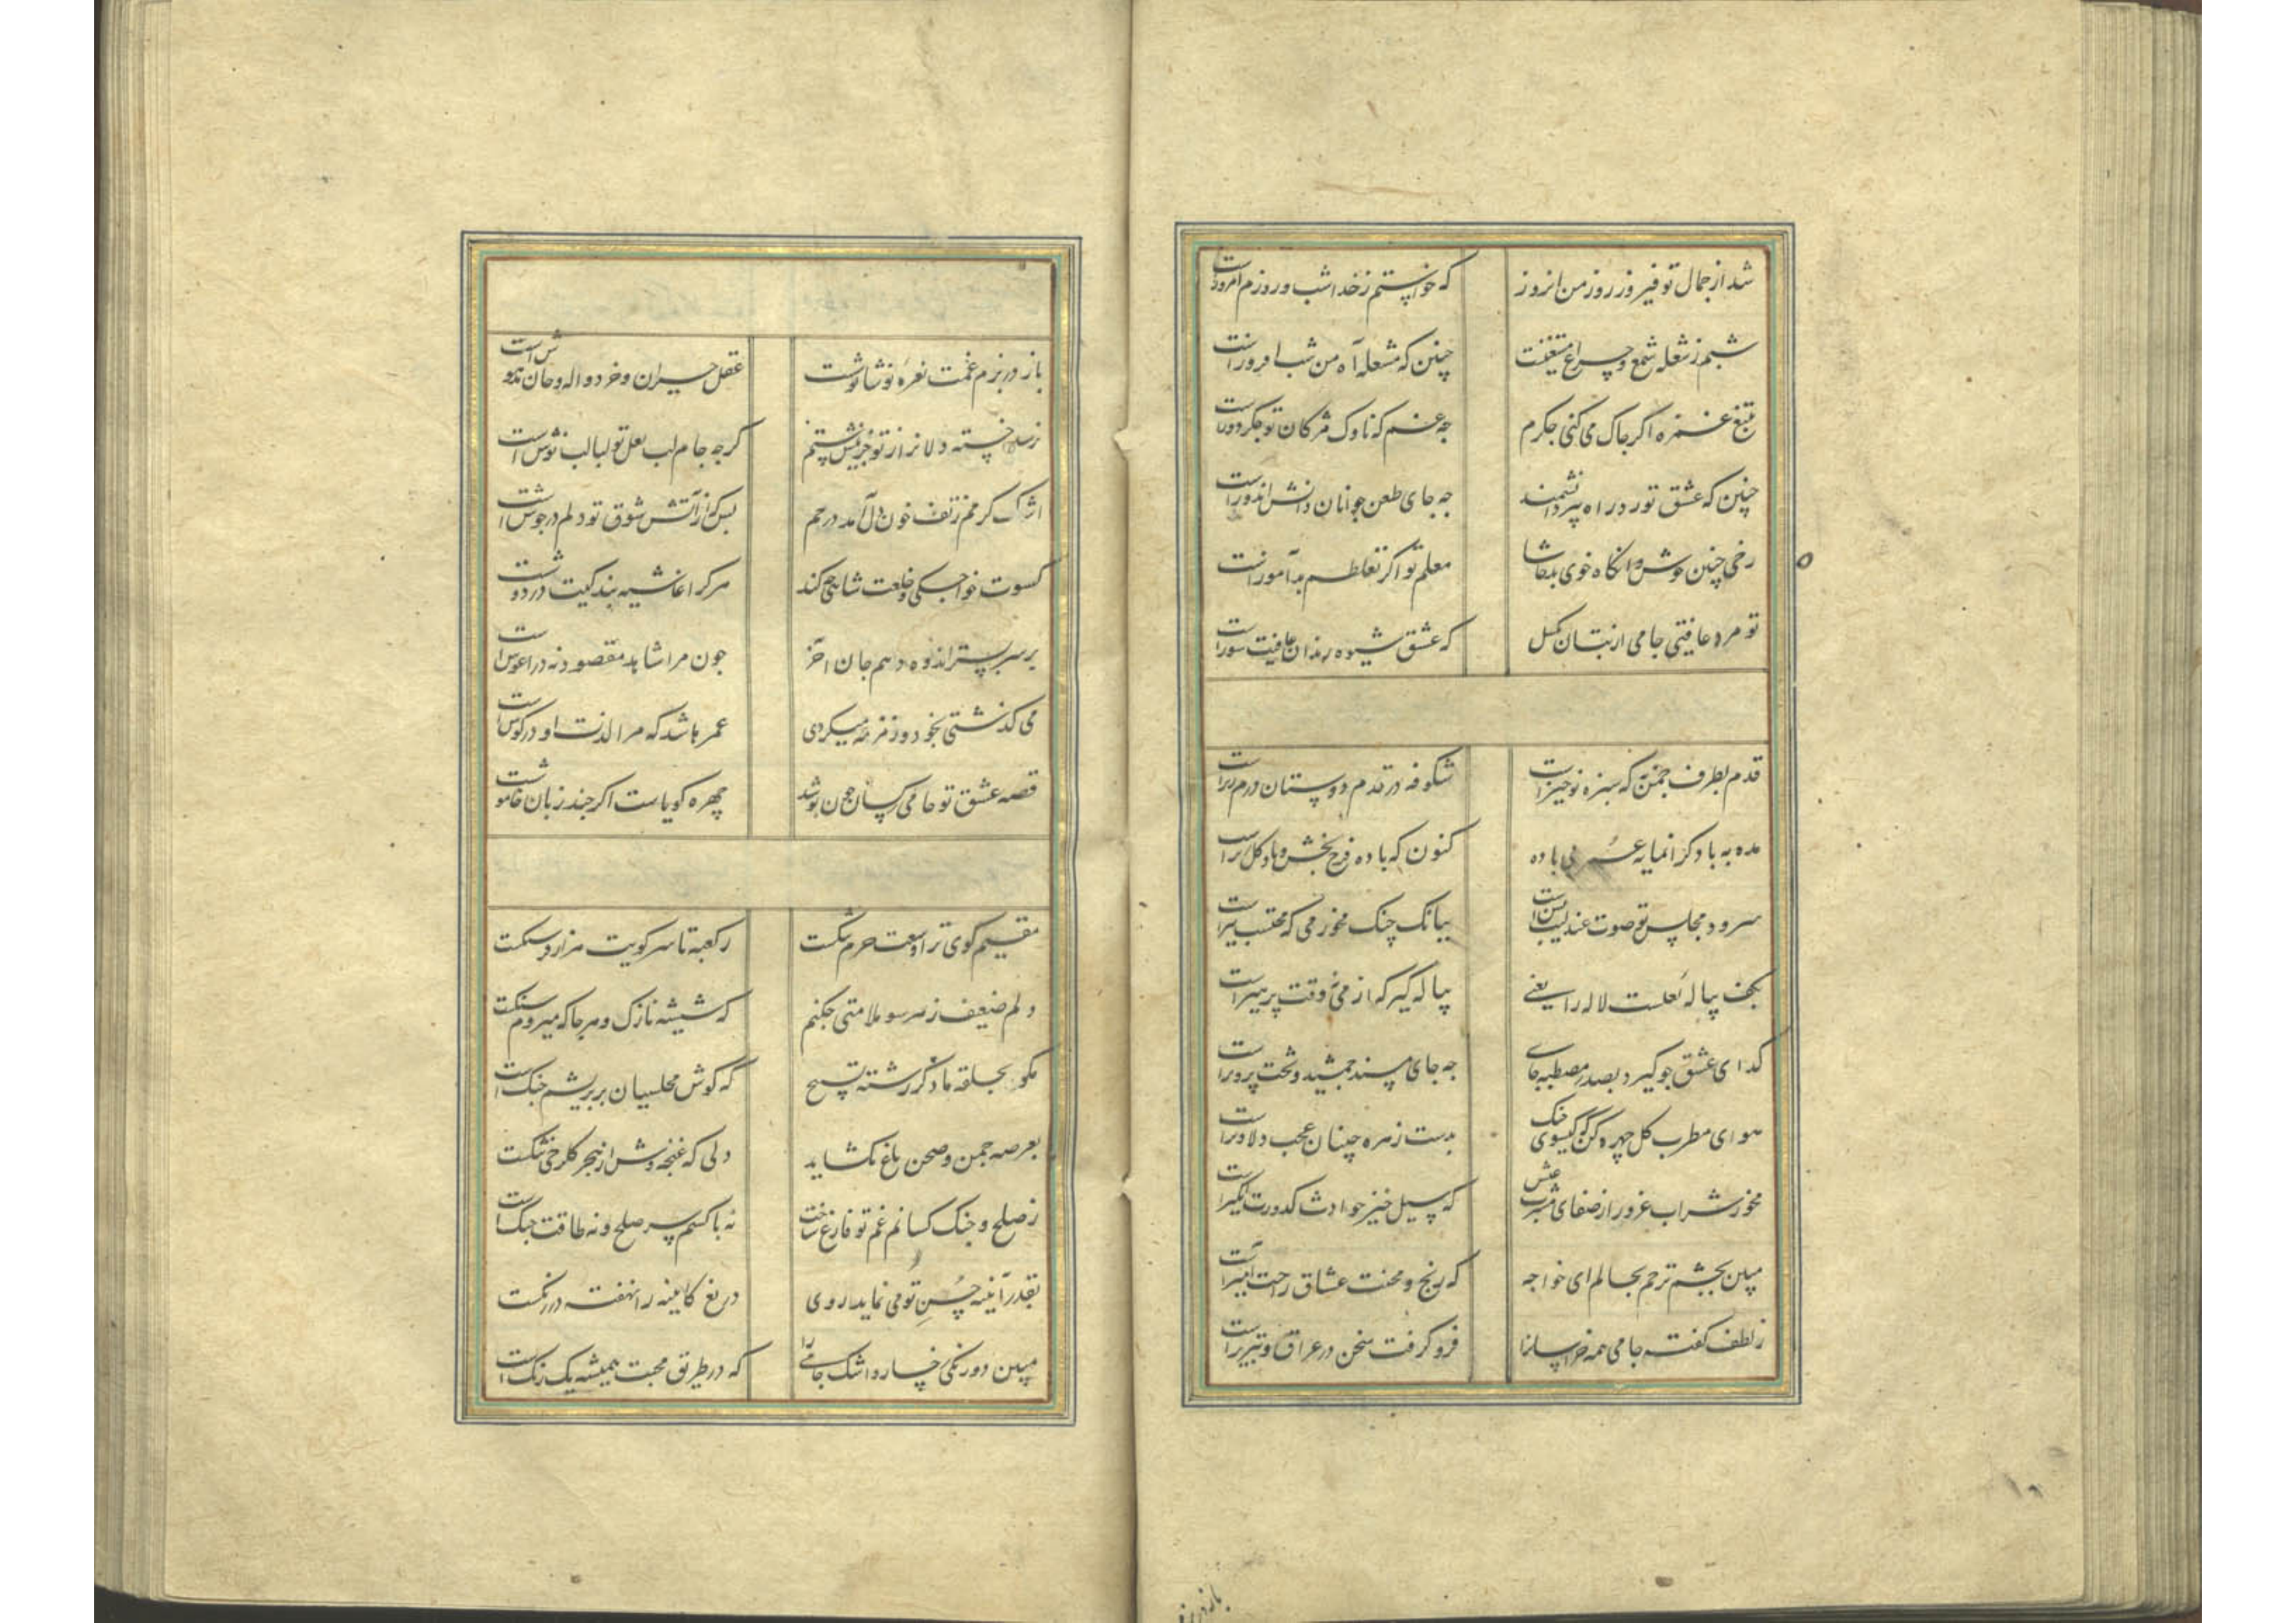 شد از جمال تو فیروز روز من امروز
که خواستم ز خدا شب و روزم امروزست
شبم ز شعله شمع و چراغ مستغنیست
چنین که مشعله آه من شب افروزست
بتیغ غمزه اکر چاک می کنی جکرم
چه غم که ناوک مژکان تو جکر دوزست
چنین که عشق تو زد راه پیر دانشمند
چه جای طعن جوانان دانش اندوزست
رخی چنین خوش و انکاه خوی بد حاشا
معلم تو اکر نه غلطم بدآموزست
تو مرد عافیتی جامی از بتان بکسل
که عشق شیوه رندان عافیت سوزست
قدم بطرف چمن نه که سبزه نوخیزست
شکوفه در قدم دوستان درم ریزست
مده به باد کرانمایه عمر بی باده
کنون که باده فرح بخش و باد کل بیزست
سرود مجلس تو صوت عندلیب بس است
ببانک چنک مخور می که محتسب تیزست
بکف پیاله لعلست لاله را یعنی
پیاله کیر که از می نه وقت پرهیزست
کدای عشق چو کیرد بصدر مصطبه جای
چه جای مسند جمشید و تخت پرویزست
هوای مطرب کل چهره کن که کیسوی چنک
بدست زهره جبینان عجب دلاویزست
مخور شراب غرور از صفای مشرب عیش
که سیل خیز حوادث کدورت انکیزست
مبین بچشم ترحم بحالم ای خواجه
که رنج و محنت عشاق راحت آمیزست
ز لطف کفته جامی همه خراسانرا
فرو کرفت سخن در عراق و تبریزست
باز در بزم
باز در بزم غمت نعره نوشانوشست
عقل حیران و خرد واله و جان مدهوش است
نرسد خسته دلانرا ز تو جز نیش ستم
کرچه جام لب لعل تو لبالب نوش است
اشک کرمم ز تف خون دل آمد در چشم
بس که از آتش شوق تو دلم در جوش است
کسوت خواجکی و خلعت شاهی چکند
هر کرا غاشیه بندکیت بر دوشست
بر سر بستر اندوه دهم جان آخر
چون مرا شاهد مقصود نه در آغوش است
می کذشتی بخود و زمزمه میکردی
عمر باشد که مرا لذت او در کوش است
قصه عشق تو جامی ز کسان چون پوشد
چهره کویاست اکر چند زبان خاموشست
مقیم کوی ترا وسعت حرم تنکست
ز کعبه تا سر کویت هزار فرسنکست
دلم ضعیف ز هر سو ملامتی چکنم
که شیشه نازک و هر جا که میروم سنکست
مکو بحلقه ما ذکر رشته تسبیح
که کوش مجلسیان بر بریشم چنک است
بعرصه چمن و صحن باغ نکشاید
دلی که غنچه وش از هجر کلرخی تنکست
ز صلح و جنک کسانم غم تو فارغ ساخت
نه با کسم سر صلح و نه طاقت جنک است
بقدر آینه حسن تو می نماید روی
دریغ کاینه را نهفته در زنکست
مبین دورنکی رخسار و اشک جامی را
که در طریق محبت همیشه یک رنک است